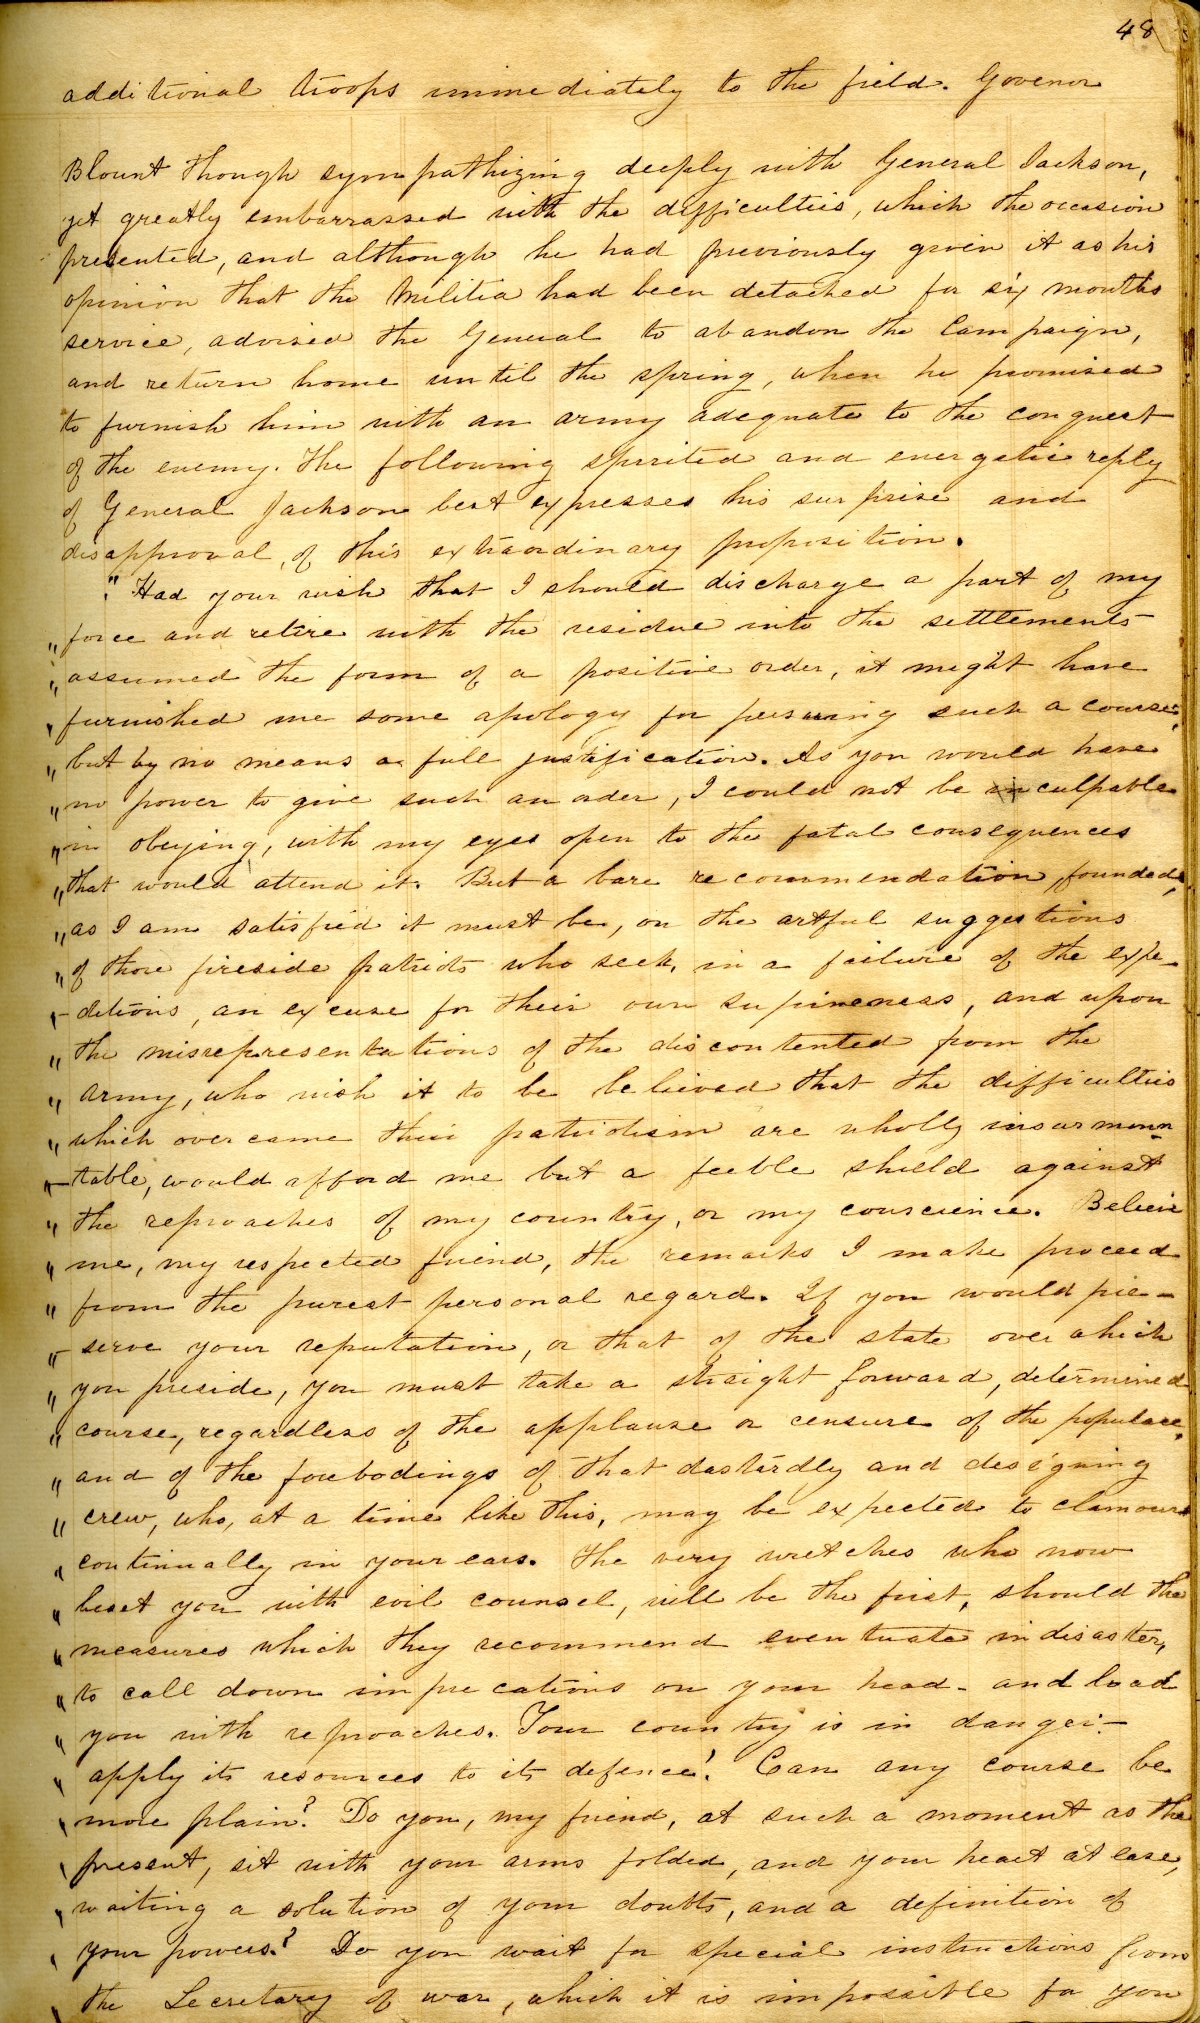 48
additional troops immediately to the field. Govenor
Blount though sympathizing deeply with General Jackson,
yet greatly embarrassed with the difficulties, which the occasion
presented, and although he had previously given it as his
opinion that the Militia had been detached for six months
service, advised the General to abandon the Campaign,
and return home until the spring, when he promised
to furnish him with an army adequate to the conquest
of the enemy. The following spirited and energetic reply
of General Jackson best expresses his surprise and
disapproval, of this extraordinary proposition.
" Had your wish that I should discharge a part of my
" force and retire with the residue into the settlements
" assumed the form of a positive order, it might have
" furnished me some apology for pursuing such a course;
" but by no means a full justification. As you would have
" no power to give such an order, I could not be inculpable
" in obeying, with my eyes open to the fatal consequences
" that would attend it. But a bare recommendation founded,
" as I am satisfied it must be, on the artful suggestions
" of those fireside patriots who seek, in a failure of the expe
" -ditions, an excuse for their own supineness, and upon
" the misrepresentations of the discontented from the
" army, who wish it to be believed that the difficulties
" which overcame their patriotism are wholly insurmoun
" -table, would afford me but a feeble shield against
" the reproaches of my country, or my conscience. Believe
" me, my respected friend, the remarks I make proceed
" from the purest personal regard. If you would pre-
" -serve your reputation, or that of the state over which
" you preside, you must take a straight forward, determined
" course, regardless of the applause or censure of the populace,
" and of the forebodings of that dastardly and designing
" crew, who, at a time like this, may be expected to clamour
" continually in your ears. The very wretches who now
" beset you with evil counsel, will be the first, should the
" measures which they recommend eventuate in disaster,
" to call down imprecations on your head - and load
" you with reproaches. Your country is in danger:-
" apply its resources to its defence! Can any course be
" more plain? Do you, my friend, at such a moment as the
" present, sit with your arms folded, and your heart at ease,
" waiting a solution of your doubts, and a definition of
" your powers? Do you wait for special instructions from
" the Secretary of war, which it is impossible for you